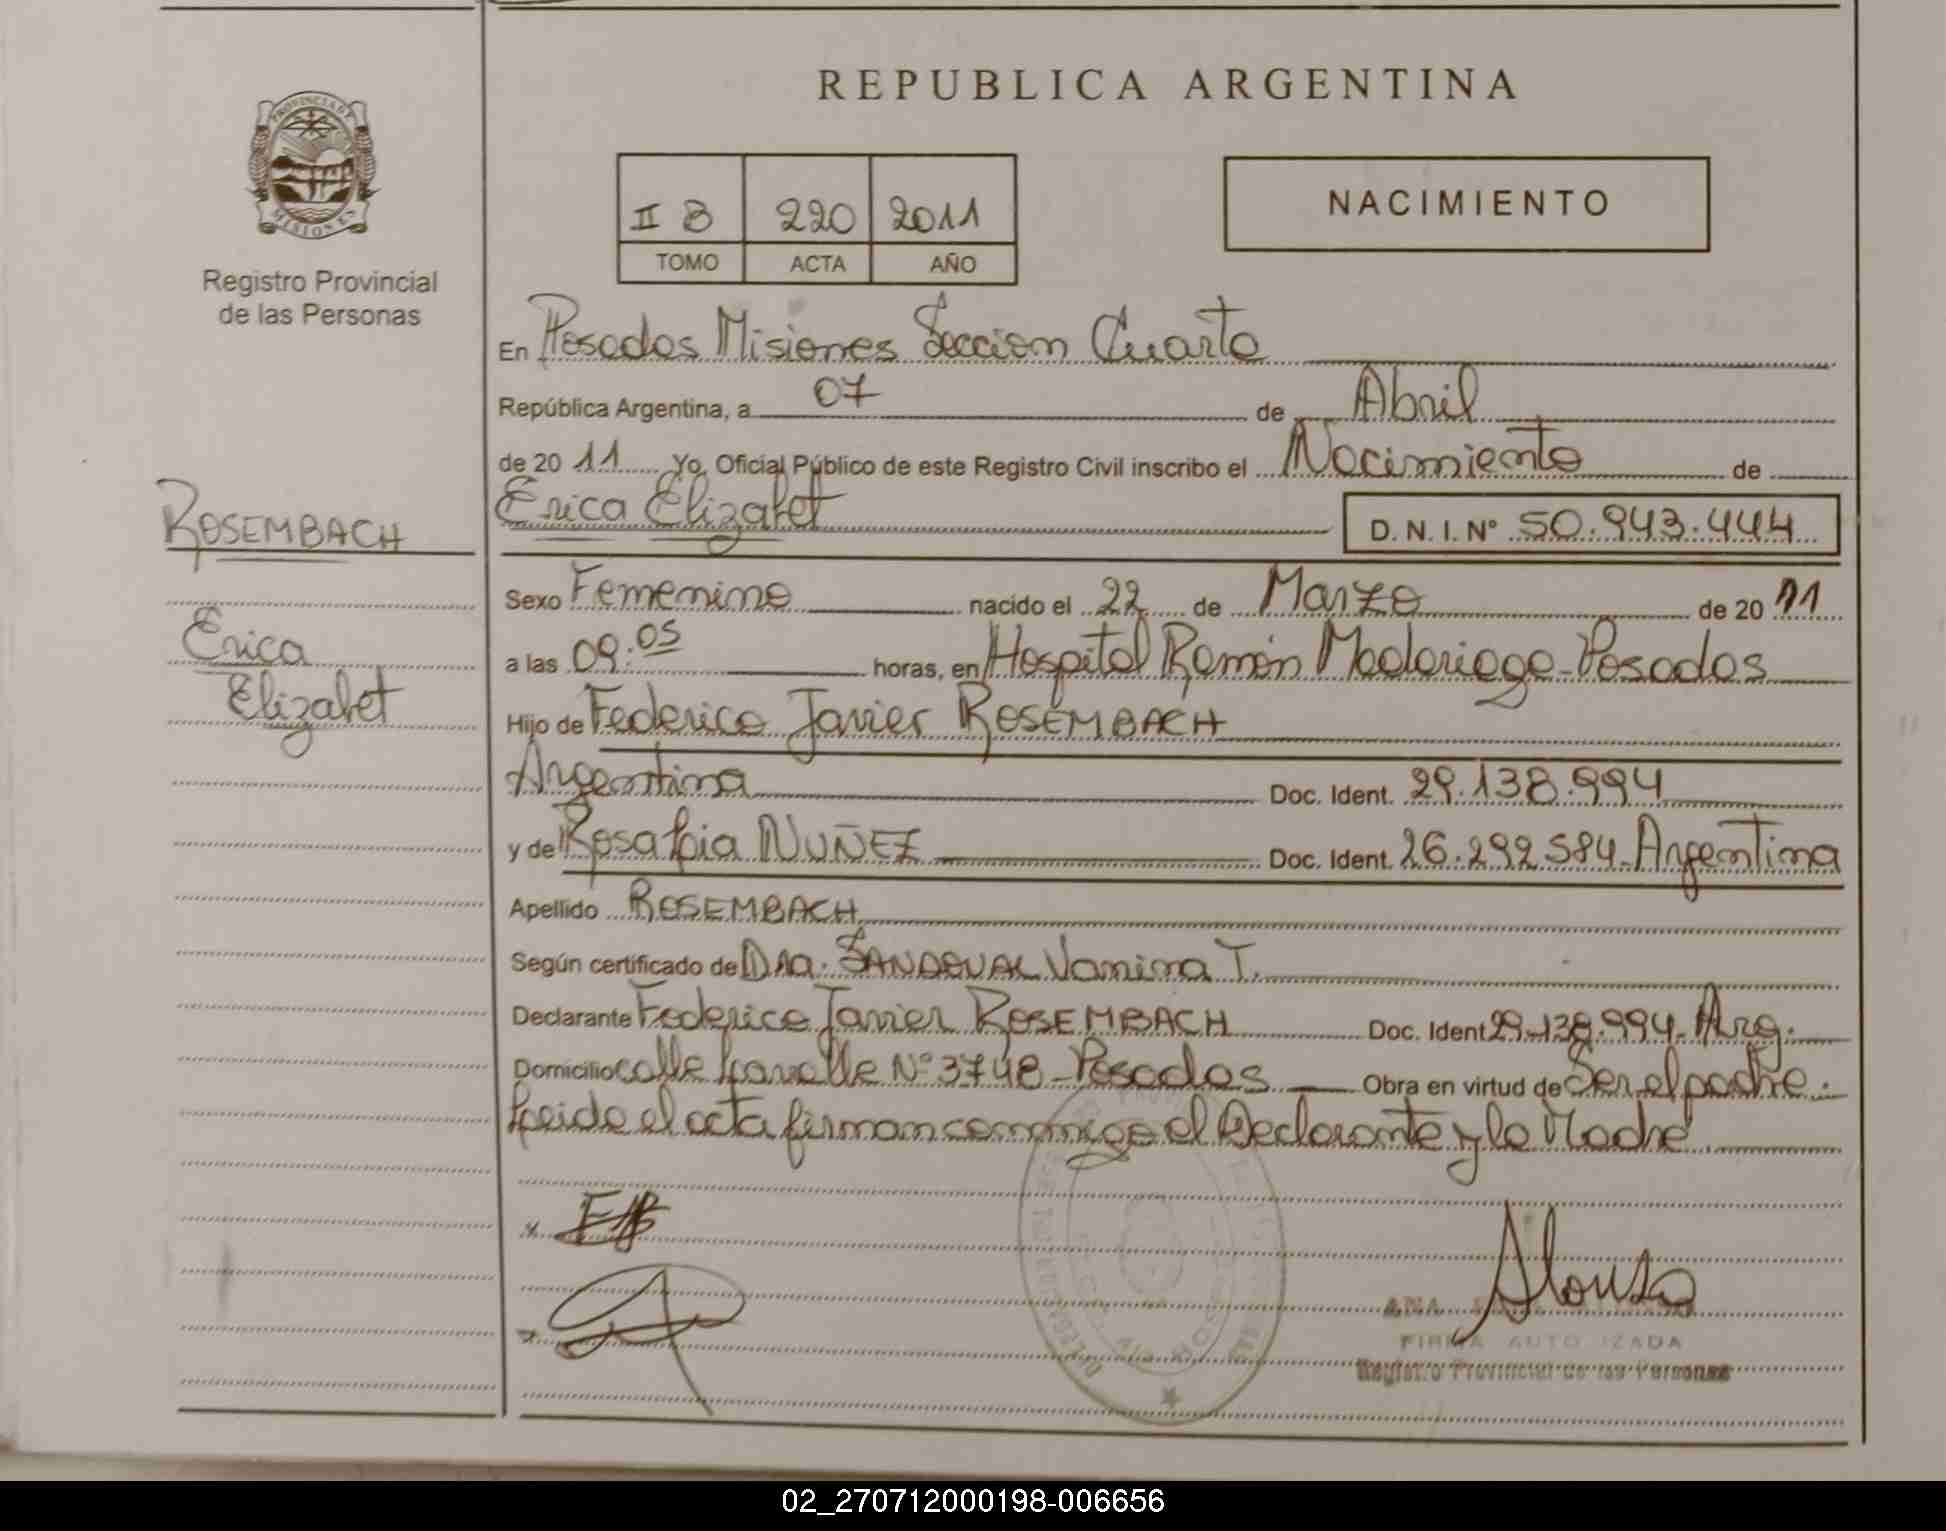 REPUBLICA ARGENTINA
PROVINCIA DE
MISIONES
Registro Provincial
de las Personas
II B 220 2011
TOMO ACTA AÑO
NACIMIENTO
En Posadas Misiones Seccion Cuarta
República Argentina, a 07 de Abril
de 20 11 Yo, Oficial Público de este Registro Civil inscribo el Nacimiento de
Erica Elizabet D. N. I. Nº 50.943.444
ROSEMBACH
Erica
Elizabet
Sexo Femenino nacido el 22 de Marzo de 20 11
a las 09:05 horas, en Hospital Ramón Madariaga - Posadas
Hijo de Federico Javier ROSEMBACH
Argentina Doc. Ident. 29.138.994
y de Rosa Lia NUÑEZ Doc. Ident. 26.292.584 - Argentina
Apellido ROSEMBACH
Según certificado de Dra. SANDOVAL Vanina T.
Declarante Federico Javier ROSEMBACH Doc. Ident 29.138.994 - Arg.
Domicilio calle Lavalle Nº 3748 - Posadas Obra en virtud de Ser el padre.
Leida el acta firman conmigo el Declarante y la Madre
Alonso
ANA
FIRMA AUTORIZADA
Registro Provincial de las Personas
02_270712000198-006656